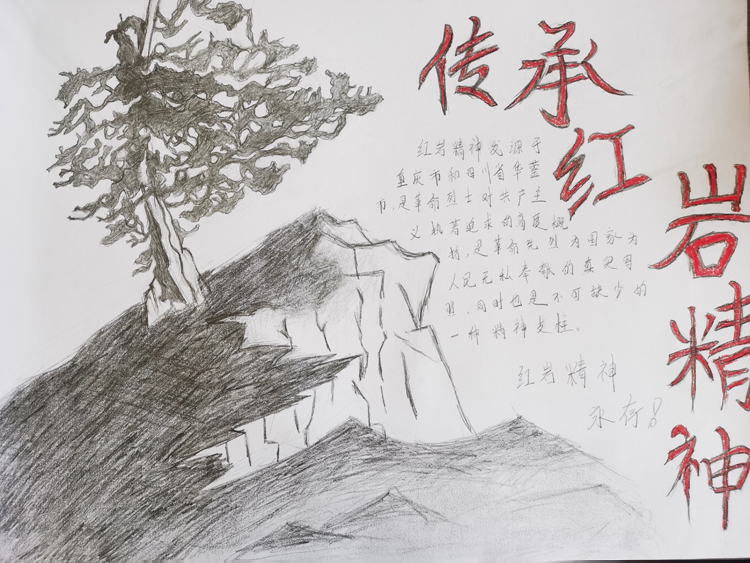 传承
红
岩
精
神
红岩精神发源于
重庆市和四川省华蓥
市,是革命烈士对共产主
义执着追求的高度概
括,是革命先烈为国家为
人民无私奉献的真实写
照,同时也是不可缺少的
一种精神支柱。
红岩精神
永存